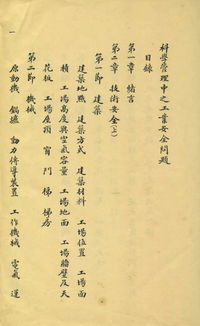 科學管理中之工業安全問題
目錄
第一章 緒言
第二章 技術安全(上)
第一節 建築
建築地點 建築方式 建築材料 工場位置 工場面
積 工場高度與空氣容量 工場地面 工場牆壁及天
花板 工場屋頂 窗 門 梯 梯房
第二節 機械
原動機 鍋爐 動力傳導裝置 工作機械 電氣 運
一